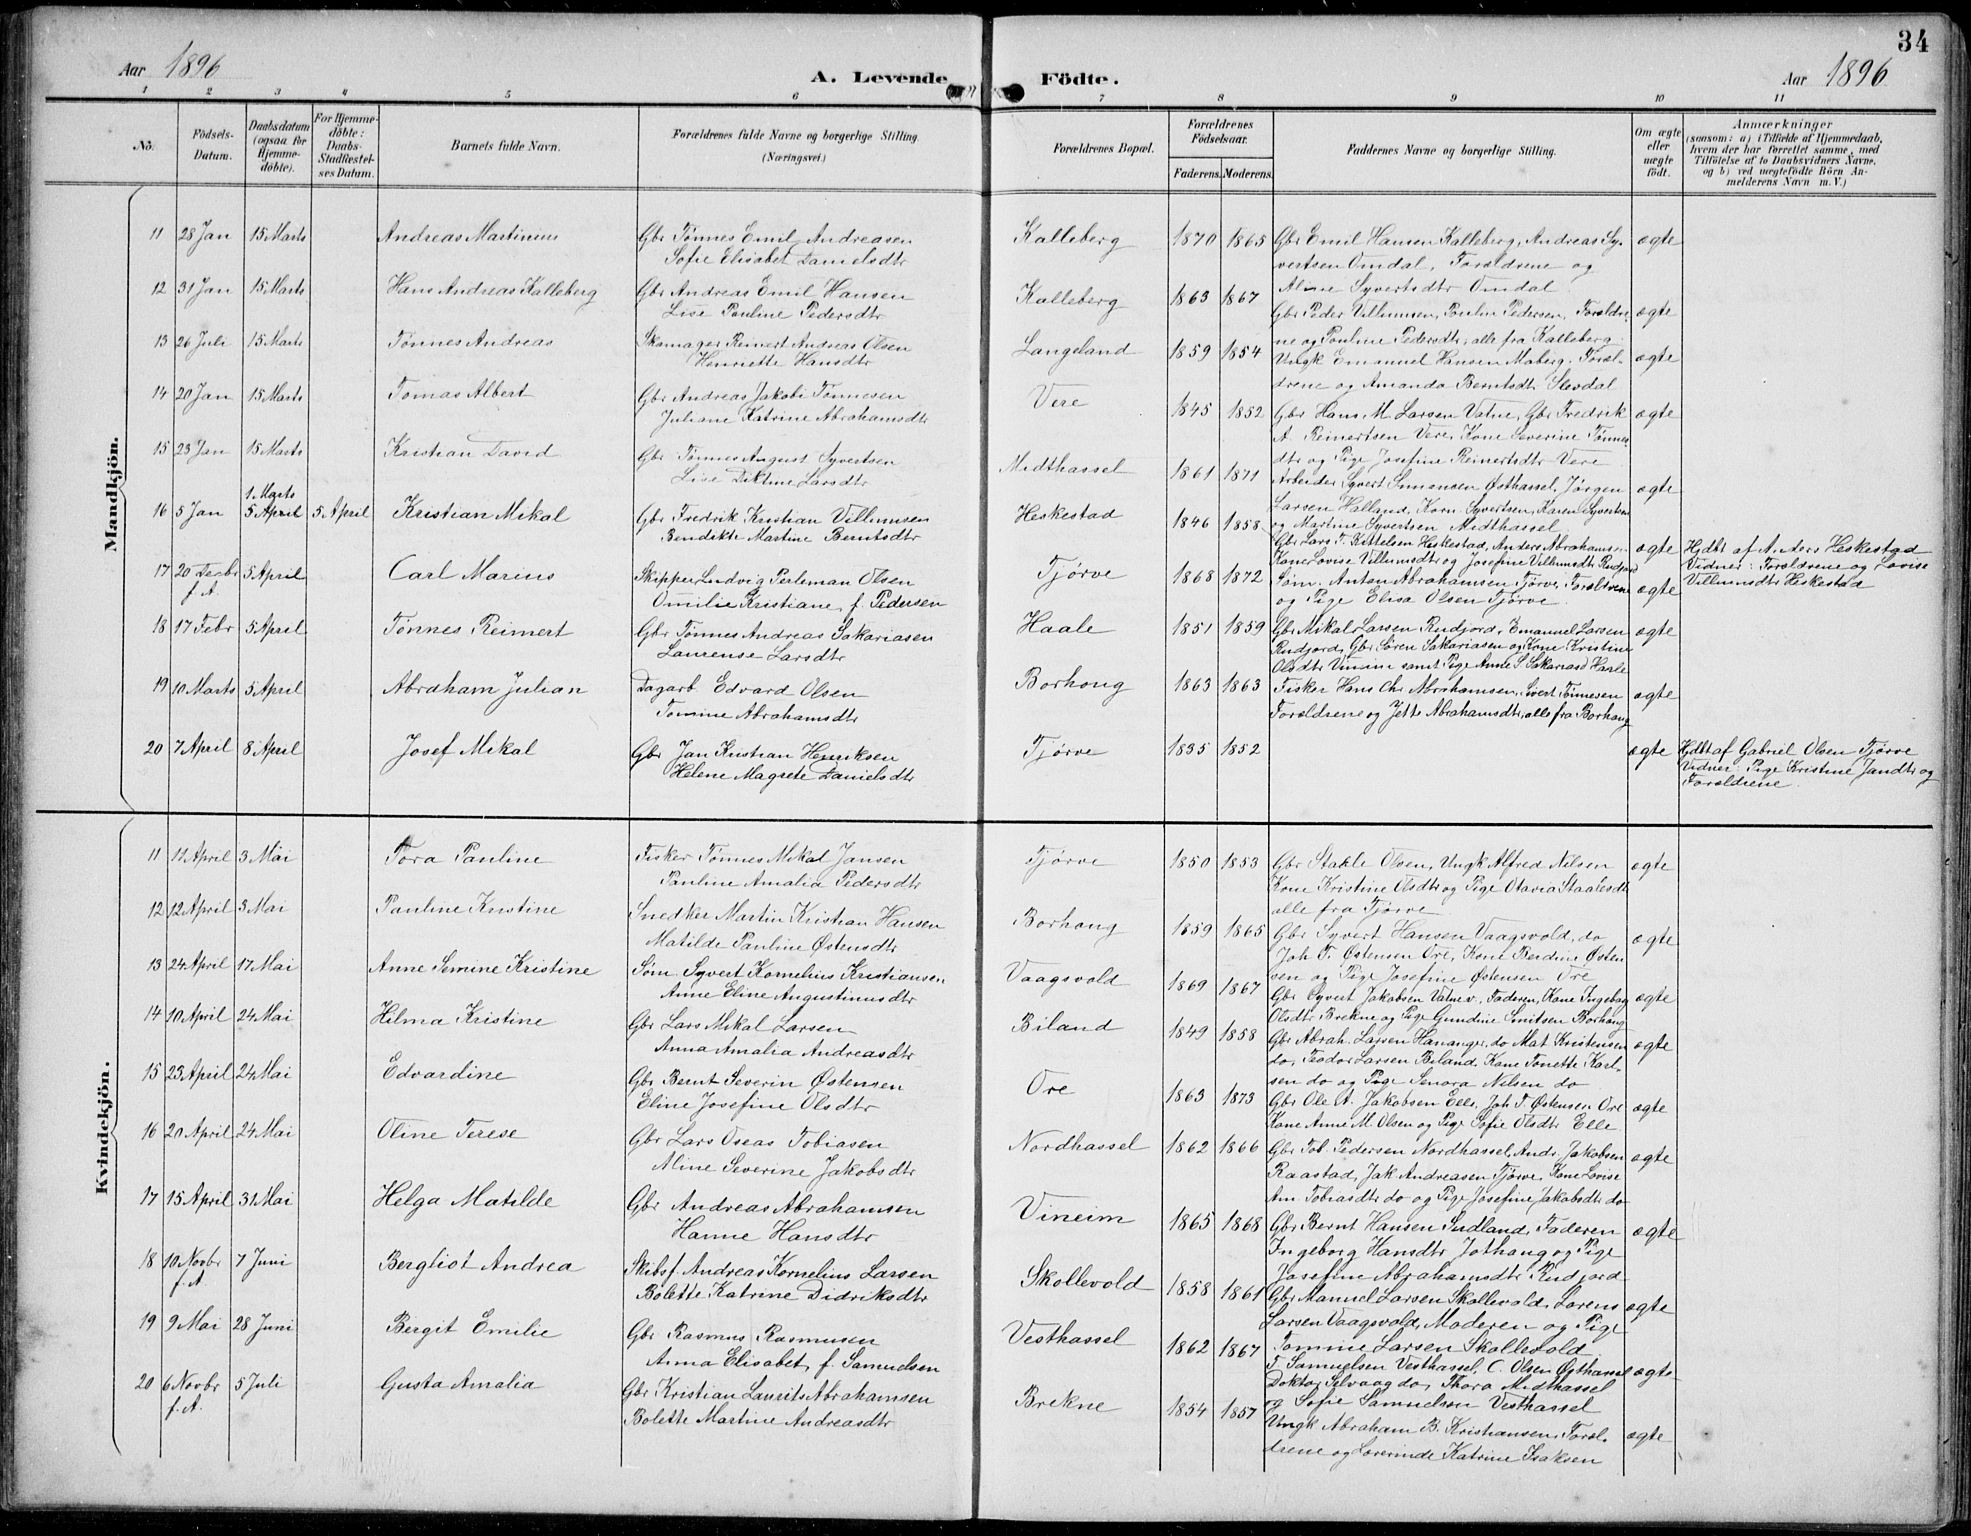 34
Aar 1896
A. Levende Födte.
Aar 1896
1 2 3 4 5 6 7 8 9 10 11
No.
Födsels-Datum.
Daabsdatum (ogsaa for Hjemme-döbte).
For Hjemme-döbte: Daabs-Stadfæstel-ses Datum.
Barnets fulde Navn.
Forældrenes fulde Navne og borgerlige Stilling.
(Næringsvei.)
Forældrenes Bopæl.
Forældrenes Födselsaar.
Faderens. Moderens.
Faddernes Navne og borgerlige Stilling.
Om ægte eller uægte født.
Anmærkninger
(saasom: a) i Tilfælde af Hjemmedaab,
hvem der har forrettet samme, med
Tilföielse af to Daabsvidners Navne,
og b) ved uægtefödte Börn An-
melderens Navn m.V.)
Mandkjön.
11 28 Jan 15 Marts Andreas Martinius Gbr Tønnes Emil Andreasen Kalleberg 1870 1865 Gbr Emil Hansen Kalleberg, Andreas Sy- ægte
Sofie Elisabet Danielsdtr vertsen Omdal, Forældrene og
12 31 Jan 15 Marts Hans Andreas Kalleberg Gbr Andreas Emil Hansen Kalleberg 1863 1867 Syvertsdtr Omdal
Lise Pauline Pedersdtr Gbr Peder Villumsen, Poulin Pedersen, Forældre- ægte
13 26 Juli 15 Marts Tønnes Andreas Skomager Reinert Andreas Olsen Langeland 1859 1854 ne og Pouline Pedersdtr, alle fra Kalleberg
Henriette Hansdtr Ungk Emanuel Hansen Maberg, Foræl- ægte
drene og Amanda Berntsdtr Slevdal
14 20 Jan 15 Marts Tomas Albert Gbr Andreas Jakobi Tønnesen Vere 1845 1852 Gbr Hans M. Larsen Vatne, Gbr Fredrik ægte
Juliane Katrine Abrahamsdtr A. Reinertsen Vere, Kone Severine Tønnes
15 23 Jan 15 Marts Kristian David Gbr Tønnes August Syvertsen Midthassel 1861 1871 dtr og Pige Josefine Reinertsdtr Vere
Lise Diktine Larsdtr Arbeider Syvert Simonsen Østhassel, Jørgen ægte
1. Marts
16 5 Jan 5 April 5 April Kristian Mikal Gbr Fredrik Kristian Villumsen Heskestad 1846 1858 Larsen Halland, Korn. Syvertsen, Karen Syvertsen
Bendikte Martine Berntsdtr og Martine Syvertsen Midthassel
Gbr Lars T. Kittelsen Heskestad, Anders Abrahamsen ægte Hjdbt af Anders Heskestad
17 20 Decbr f.A 5 April Carl Marius Skipper Ludvig Perleman Olsen Tjørve 1868 1872 Kone Lovise Villumsdtr og Josefine Villumsdtr Rudjord Vidner: Forældrene og Lovise
Omilie Kristiane, f. Pedersen Søm. Anton Abrahamsen Tjørve, Forældrene ægte Villumsdtr Heskestad
og Pige Elisa Olsen Tjørve
18 17 Febr 5 April Tønnes Reinert Gbr Tønnes Andreas Sakariasen Haale 1851 1859 Gbr Mikal Larsen Rudjord, Emanuel Larsen ægte
Laurense Larsdtr Rudjord, Gbr Søren Sakariasen og Kone Kristine
Olsdtr Vineim samt Pige Anne S. Sakariasd Haale
19 10 Marts 5 April Abraham Julian Dagarb Edvard Olsen Borhong 1863 1863 Fisker Hans Chr Abrahamsen, Sivert Tønnesen ægte
Tomine Abrahamsdtr Forældrene og Jette Abrahamsdtr, alle fra Borhaug
20 7 April 8 April Josef Mikal Gbr Jan Kristian Henriksen Tjørve 1835 1852 ægte Hjdbt af Gabriel Olsen Tjørve
Helene Magrete Danielsdtr Vidner: Pige Kristine Jansdtr og
Forældrene
Kvindekjön.
11 12 April 3 Mai Tora Pauline Fisker Tønnes Mikal Jansen Tjørve 1850 1853 Gbr Stakle Olsen, Ungk Alfred Nilsen ægte
Pauline Amalia Pedersdtr Kone Kristine Olsdtr og Pige Otaria Staalesdtr
alle fra Tjørve
12 12 April 3 Mai Pauline Kristine Snedker Martin Kristian Hansen Borhong 1859 1865 Gbr Syvert Hansen Vaagsvold, do ægte
Matilde Pauline Østensdtr Joh T. Østensen Ore, Kone Berdine Østen
13 24 April 17 Mai Anne Semine Kristine Søm Syvert Kornelius Kristiansen Vaagsvold 1869 1867 sen og Pige Josefine Østensen Ore
Anne Eline Augustinusdtr Gbr Syvert Jakobsen Vatne, Faderen, Kone Ingebog ægte
14 10 April 24 Mai Hilma Kristine Gbr Lars Mikal Larsen Biland 1849 1858 Olsdtr Brekne og Pige Gundine Smitsen Borhaug
Anna Amalia Andreasdtr Gbr Abrah. Larsen Hananger, do Mat Kristensen ægte
do, Teodor Larsen Biland, Kone Tonette Karl-
15 23 April 24 Mai Edvardine Gbr Bernt Severin Østensen Ore 1863 1873 sen do og Pige Senora Nilsen do
Eline Josefine Olsdtr Gbr Ole A. Jakobsen Elle, Joh T. Østensen Ore ægte
Kone Anne M Olsen og Pige Sofie Olsdtr Elle
16 20 April 24 Mai Oline Terese Gbr Lars Oseas Tobiasen Nordhassel 1862 1866 Gbr Tob. Pedersen Nordhassel, Andr. Jakobsen ægte
Aline Severine Jakobsdtr Raastad, Jak Andreasen Tjørve, Kone Lovise
Am Tobiasdtr do og Pige Josefine Jakobsdtr do
17 15 April 31 Mai Helga Matilde Gbr Andreas Abrahamsen Vineim 1865 1868 Gbr Bernt Hansen Sudland, Faderen ægte
Hanne Hansdtr Ingeborg Hansdtr Jothaug og Pige
Josefine Abrahamsdtr Rudjord
18 10 Novbr f.A 7 Juni Bergliot Andrea Skibsf. Andreas Kornelius Larsen Skollevold 1858 1861 Gbr Manuel Larsen Skollevold, Lorens ægte
Bolette Katrine Didriksdtr Larsen Vaagsvold, Moderen og Pige
Tomine Larsen Skollevold
19 9 Mai 28 Juni Bergit Emilie Gbr Rasmus Rasmusen Vesthassel 1862 1867 T. Samuelsen Vesthassel, C. Olsen Østhassel ægte
Anna Elisabet, f. Samuelsen Doktor Selvaag do, Thora Midthassel
og Sofie Samuelsen Vesthassel
20 6 Novbr f.A. 5 Juli Gusta Amalia Gbr Kristian Laurits Abrahamsen Brekne 1854 1857 Ungk Abraham B. Kristiansen, Foræl- ægte
Bolette Martine Andreasdtr drene og Lærerinde Katrine Isaksen